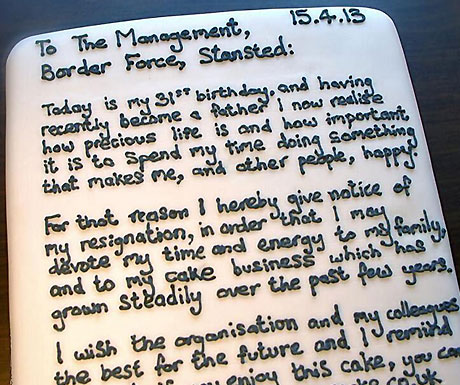 15.4.13
To The Management,
Border Force, Stansted:
Today is my 31st birthday, and having
recently become a father I now realise
how precious life is and how important
it is to spend my time doing something
that makes me, and other people, happy.
For that reason I hereby give notice of
my resignation, in order that I may
devote my time and energy to my family,
and to my cake business which has
grown steadily over the past few years.
I wish the organisation and my colleagues
the best for the future and I remind
enjoy this cake, you can